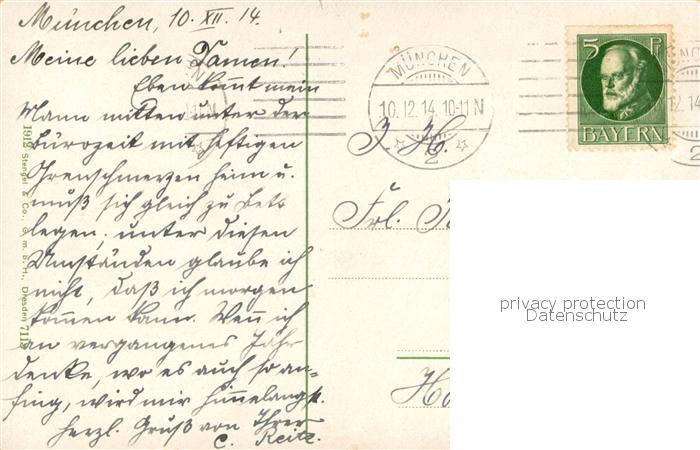 München, 10. XII. 14.
Meine lieben Damen!
Eben kommt mein
Mann mitten unter der
Bürozeit mit heftigen
Ohrenschmerzen heim u.
muß sich gleich zu Bett
legen; unter diesen
Umständen glaube ich
nicht, daß ich morgen
kommen kann. Wenn ich
an vergangenes Jahr
denke, wo es auch so an-
fing, wird mir himmelangst.
Herzl. Gruß von Ihrer
C. Reitz.
1912 Stengel & Co., G. m. b. H., Dresden
MÜNCHEN
10.12.14.10-11N
2
5 Pf
BAYERN
Frl.
privacy protection
Datenschutz